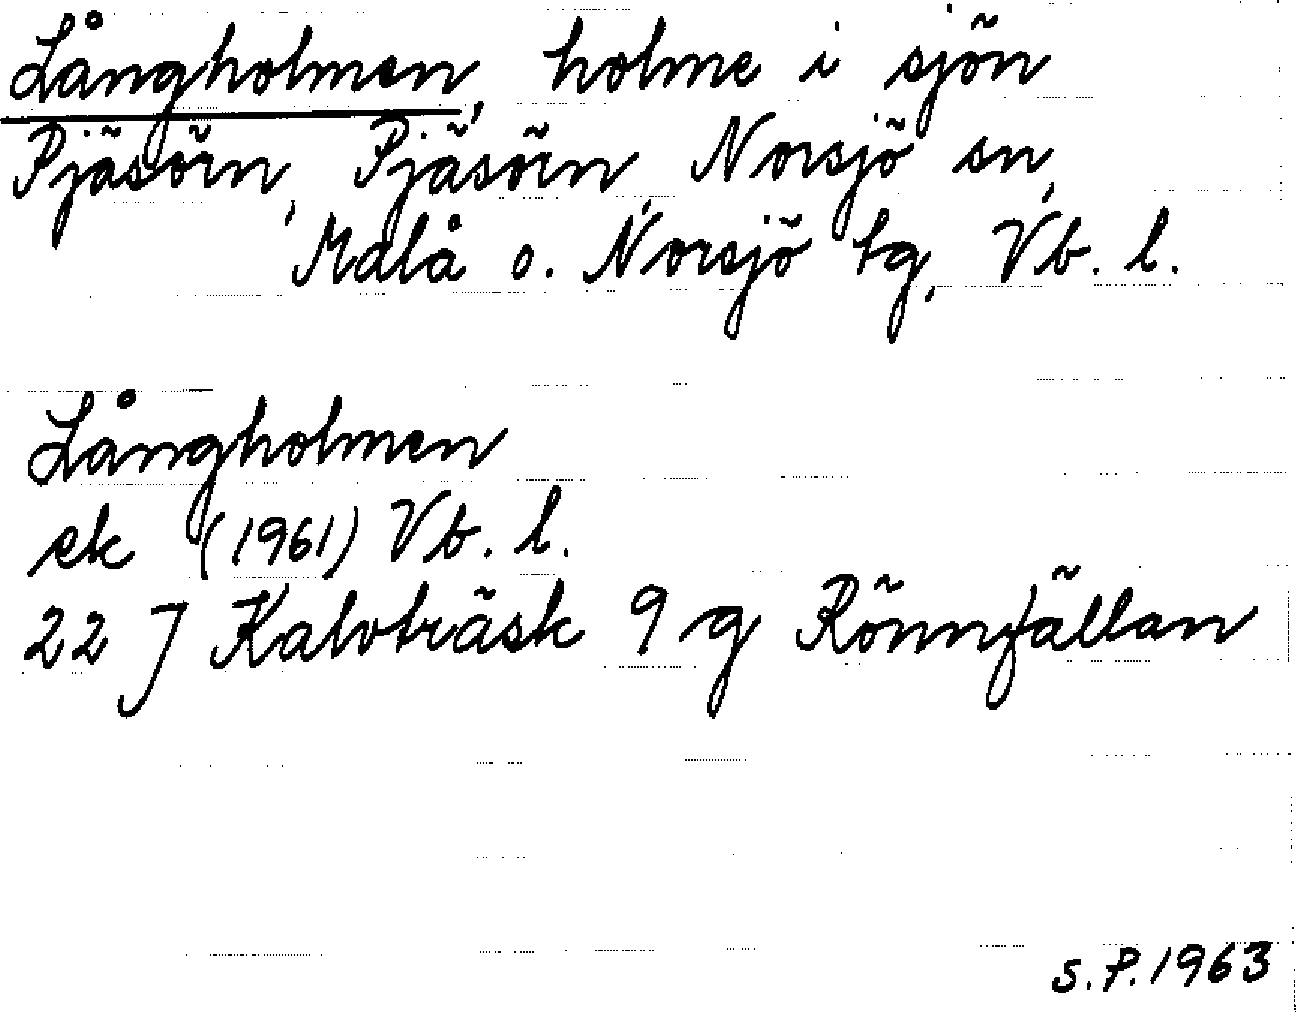 Långholmen, holme i sjön
Pjäsörn, Pjäsörn, Norsjö sn,
Malå o. Norsjö tg, Vb. l.
Långholmen
ek (1961) Vb. l.
22 J Kalvträsk 9 g Rönnfällan
S.P. 1963